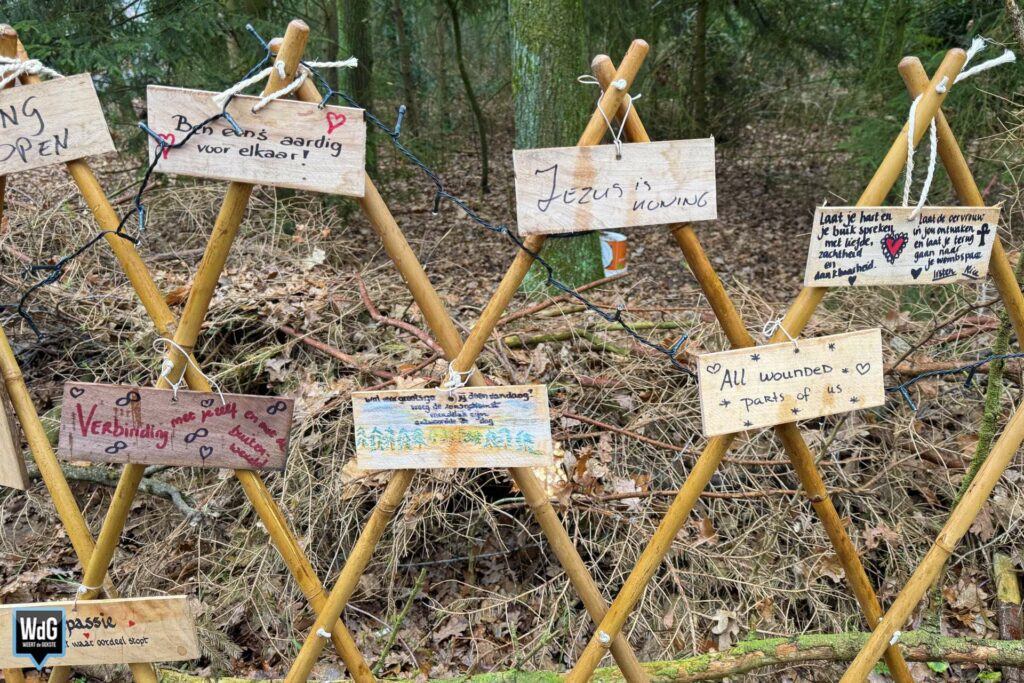 NG
OPEN
Ben eens aardig
voor elkaar!
Jezus is
KONING
Laat je hart en
je buik spreken
met liefde,
zachtheid
en
dankbaarheid.
Laat de oervrouw
in jou ontwaken
en laat je terug
gaan naar
je wombspace
Verbinding
met jezelf
en met de
buiten
wereld
doen vandaag"
antwoordde
All wounded
parts of us
passie
waar oordeel stopt
WdG
WEERT DE GEKSTE